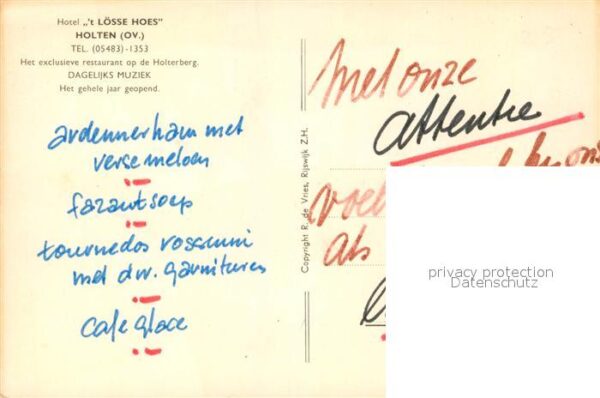 Hotel „'t LÖSSE HOES”
HOLTEN (OV.)
TEL. (05483)-1353
Het exclusieve restaurant op de Holterberg.
DAGELIJKS MUZIEK
Het gehele jaar geopend.
ardennerham met
verse meloen
fazantsoep
tournedos rossini
met div. garnituren
cafe glace
Copyright R. de Vries, Rijswijk Z.H.
Met onze
attentie
voel
als
privacy protection
Datenschutz